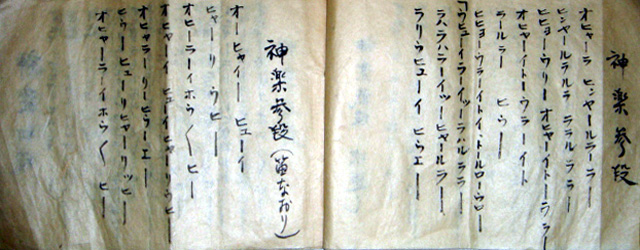 神楽参段
オヒャーラ ヒンヤールラーラー
ヒンヤールラルラ ララルララー
ヒヒョーウリー オヒャーイトーウラ
オヒャーイトーウラーイト
ラールラー ヒウー
ヒヒョーウラーイトイ、トールローウヒ
ウヒューイラーイッーラハルララー
ラハラハラーイッーヒャールラー
ラリウヒューイ ヒウエー
神楽参段(笛なおり)
オーヒャイー ヒューイ
ヒャーリ ウヒー
オヒーラーイホウ〱ヒー
オヒャーイ ヒューイヒャーリウヒ
オヒャラーリーヒウエー
ヒウーヒューリヒャーリッヒー
オヒャーラーイホウ〱 ヒー